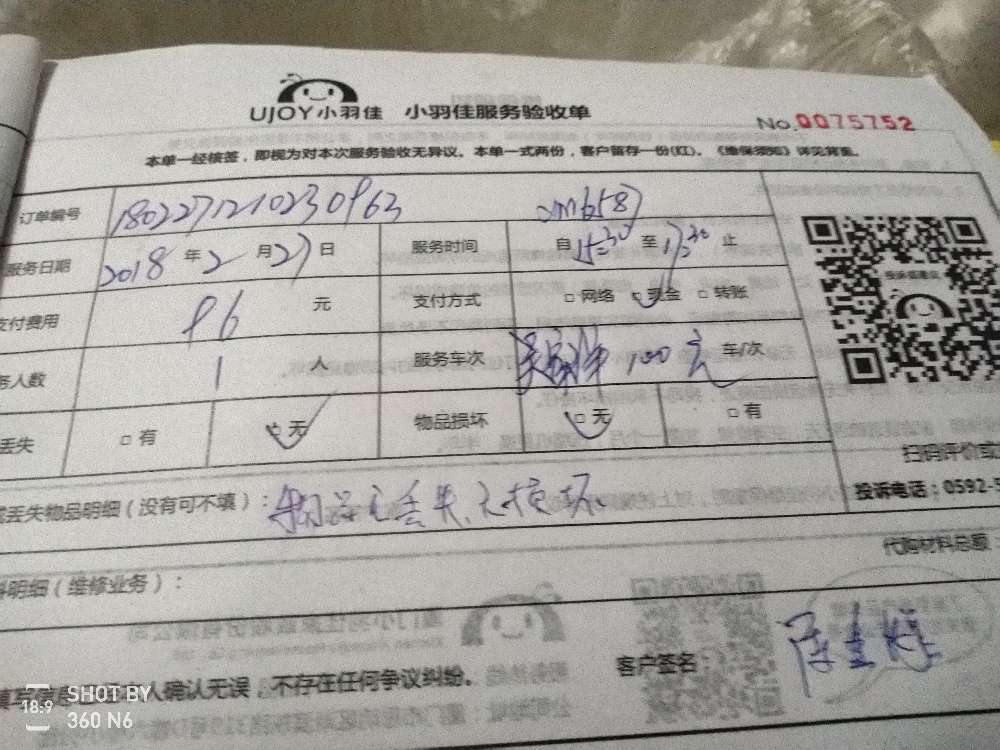 UJOY小羽佳 小羽佳服务验收单
No.0075752
本单一经核签，即视为对本次服务验收无异议。本单一式两份，客户留存一份(红)。《维保须知》详见背面。
订单编号 1802271210230963
服务日期 2018 年 2 月 27 日 服务时间 自 15:30 至 17:30 止
支付费用 96 元 支付方式 □ 网络 现金 □ 转账
务人数 1 人 服务车次 100元 车/次
丢失 □ 有 无 物品损坏 □ 无 □ 有
丢失物品明细（没有可不填）： 物品无丢失、无损坏
扫码评价或
投诉电话：0592-5
代购材料总额：
明细（维修业务）：
客户签名：
人确认无误，不存在任何争议纠纷。
SHOT BY
18:9
360 N6